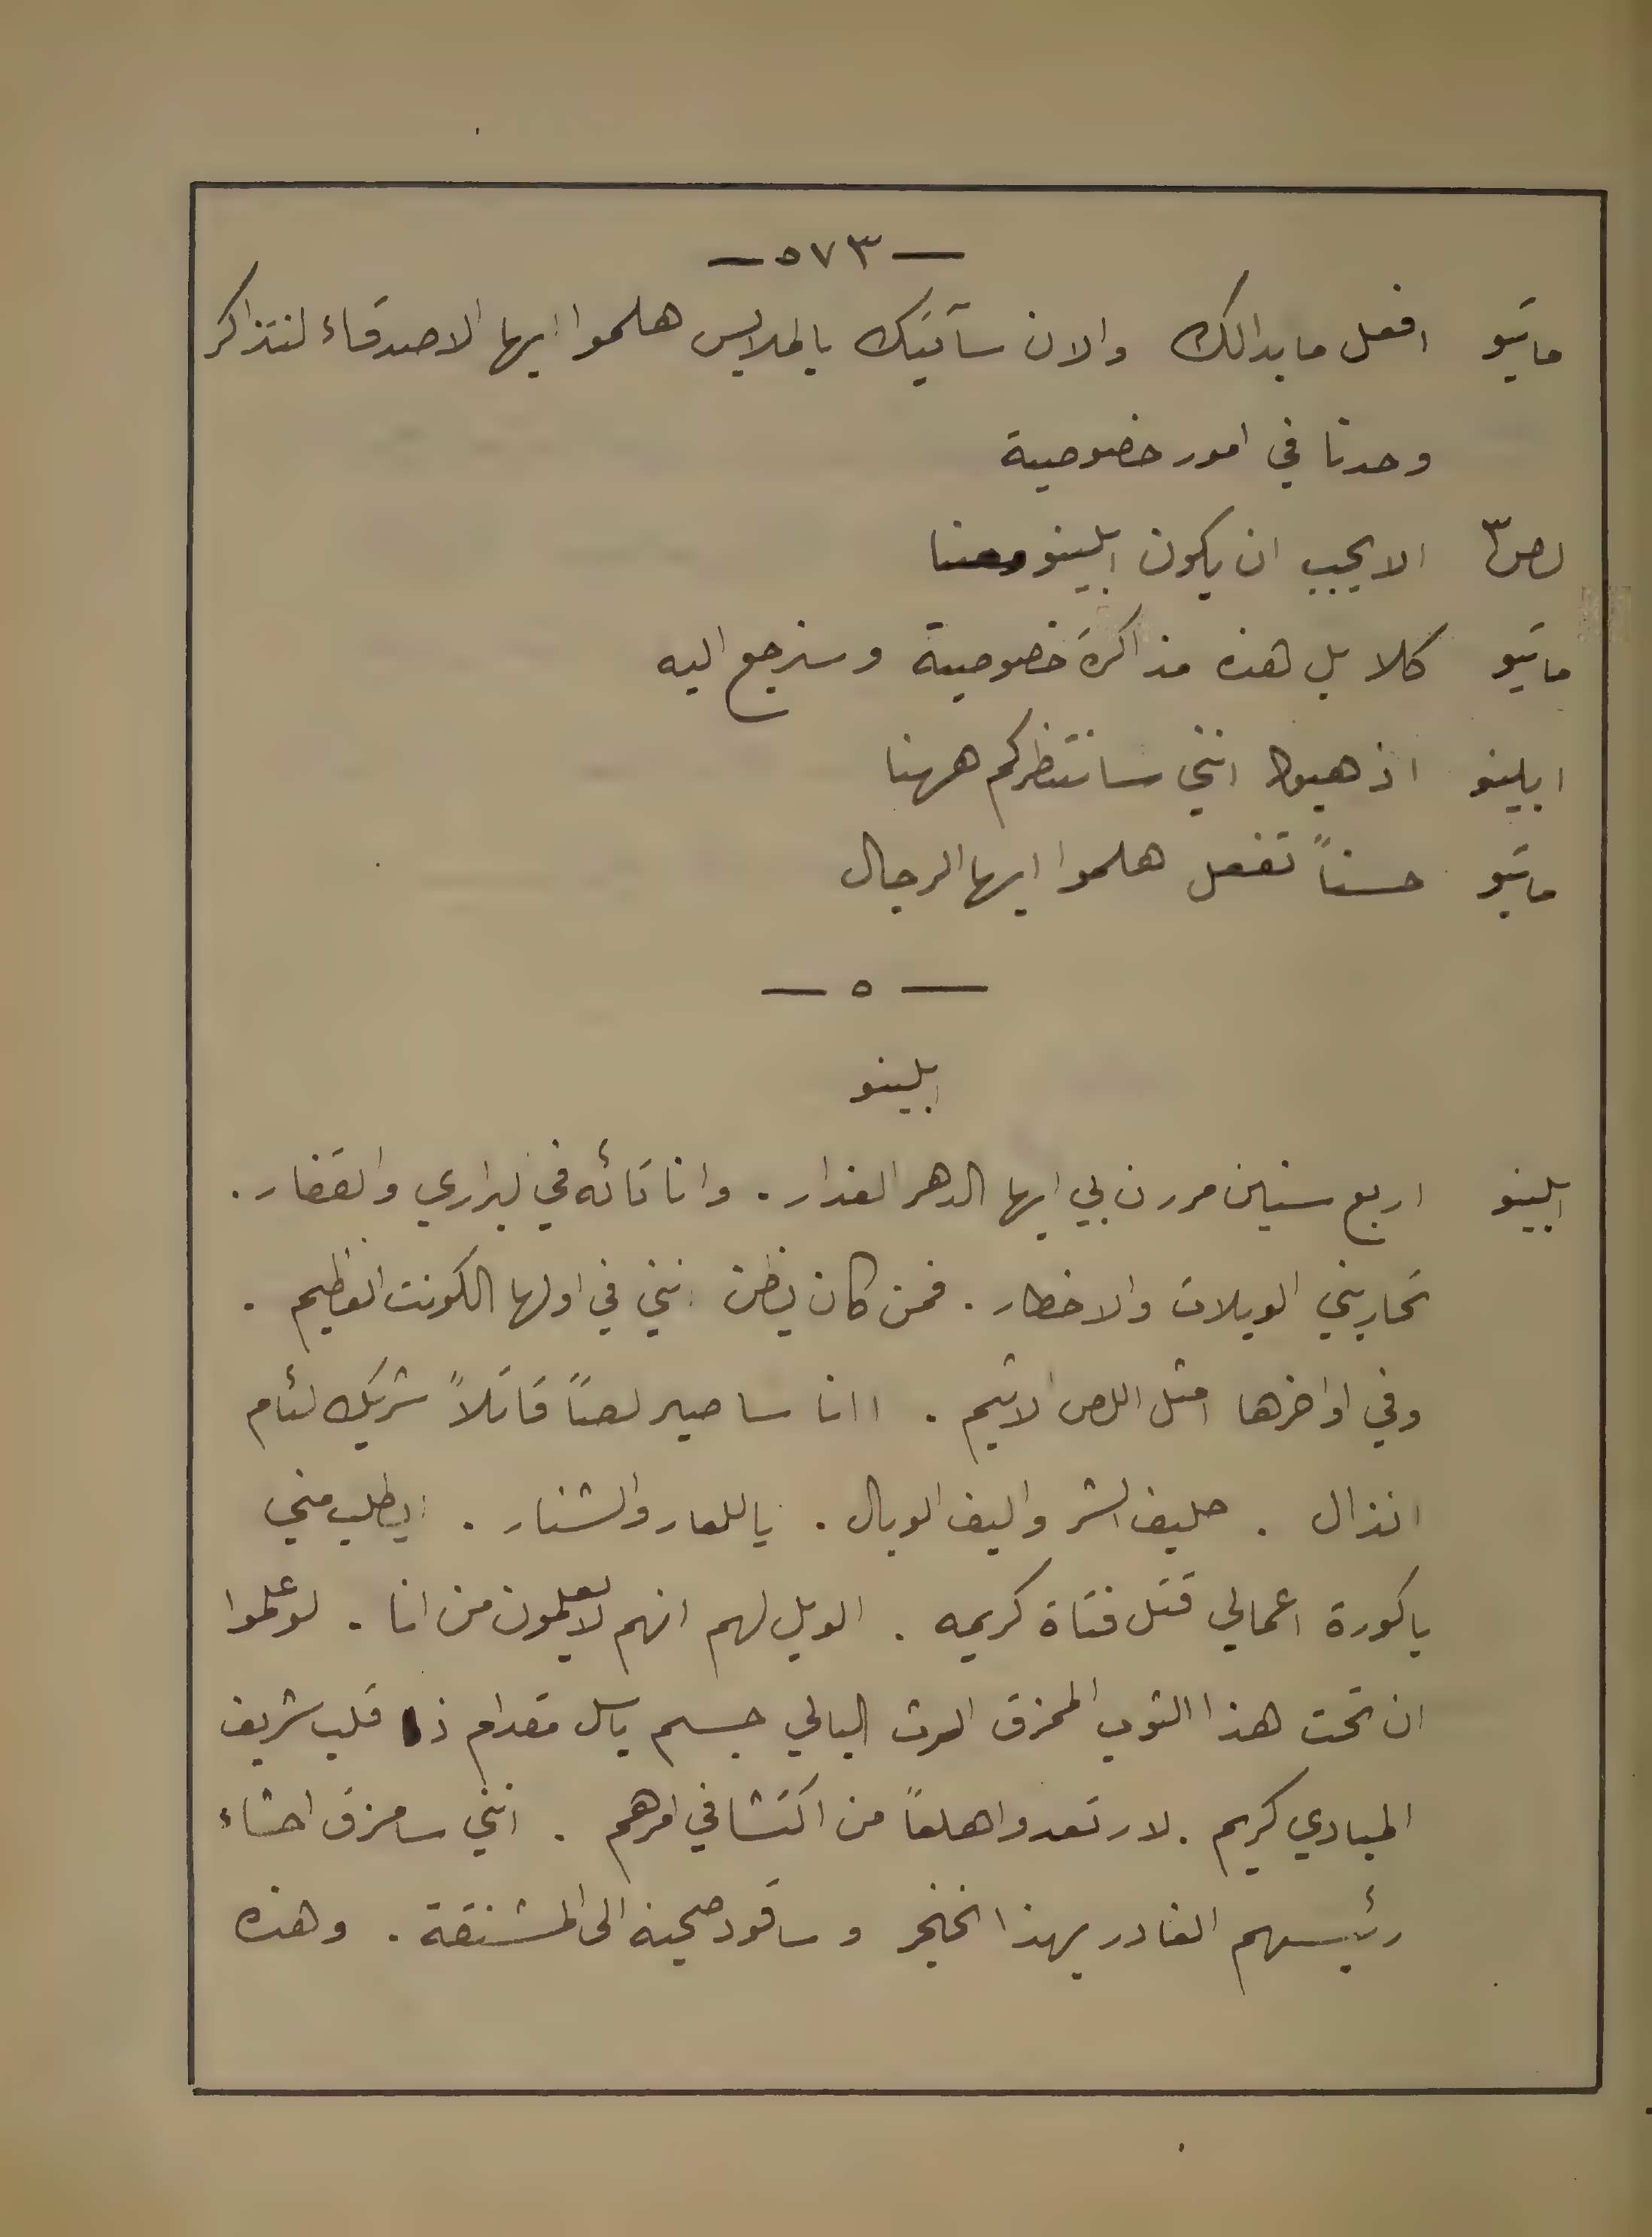 — ٥٧٣ —
ماتيو افعل ما بدالك والان سآتيك بالملابس هلموا ايها الاصدقاء لنتذاكر
وحدنا في امور خصوصية
لص٣ الا يجب ان يكون ابلينو معنا
ماتيو كلا بل هذه مذاكرة خصوصية وسنرجع اليه
ابلينو اذهبوا انني سانتظركم ههنا
ماتيو حسناً تفعل هلموا ايها الرجال
— ٥ —
ابلينو
ابلينو اربع سنين مررن بي ايها الدهر الغدار. وانا تائه في البراري والقفار.
تحاربني الويلات والاخطار. فمن كان يظن انني في اولها الكونت العظيم.
وفي اواخرها امثل اللص الاثيم. اانا ساصير لصاً قاتلاً شريك لئام
انذال. حليف الشر واليف الوبال. ياللعار والشنار. ايطلب مني
باكورة اعمالي قتل فتاة كريمه. الويل لهم انهم لا يعلمون من انا. لو علموا
ان تحت هذا الثوب الممزق الرث البالي جسم باسل مقدام ذا قلب شريف
المبادي كريم. لارتعدوا هلعاً من اكتشافي امرهم. انني سامزق احشاء
رئيسهم الغادر بهذا الخنجر وساقود صحبه الى المشنقة. وهذه